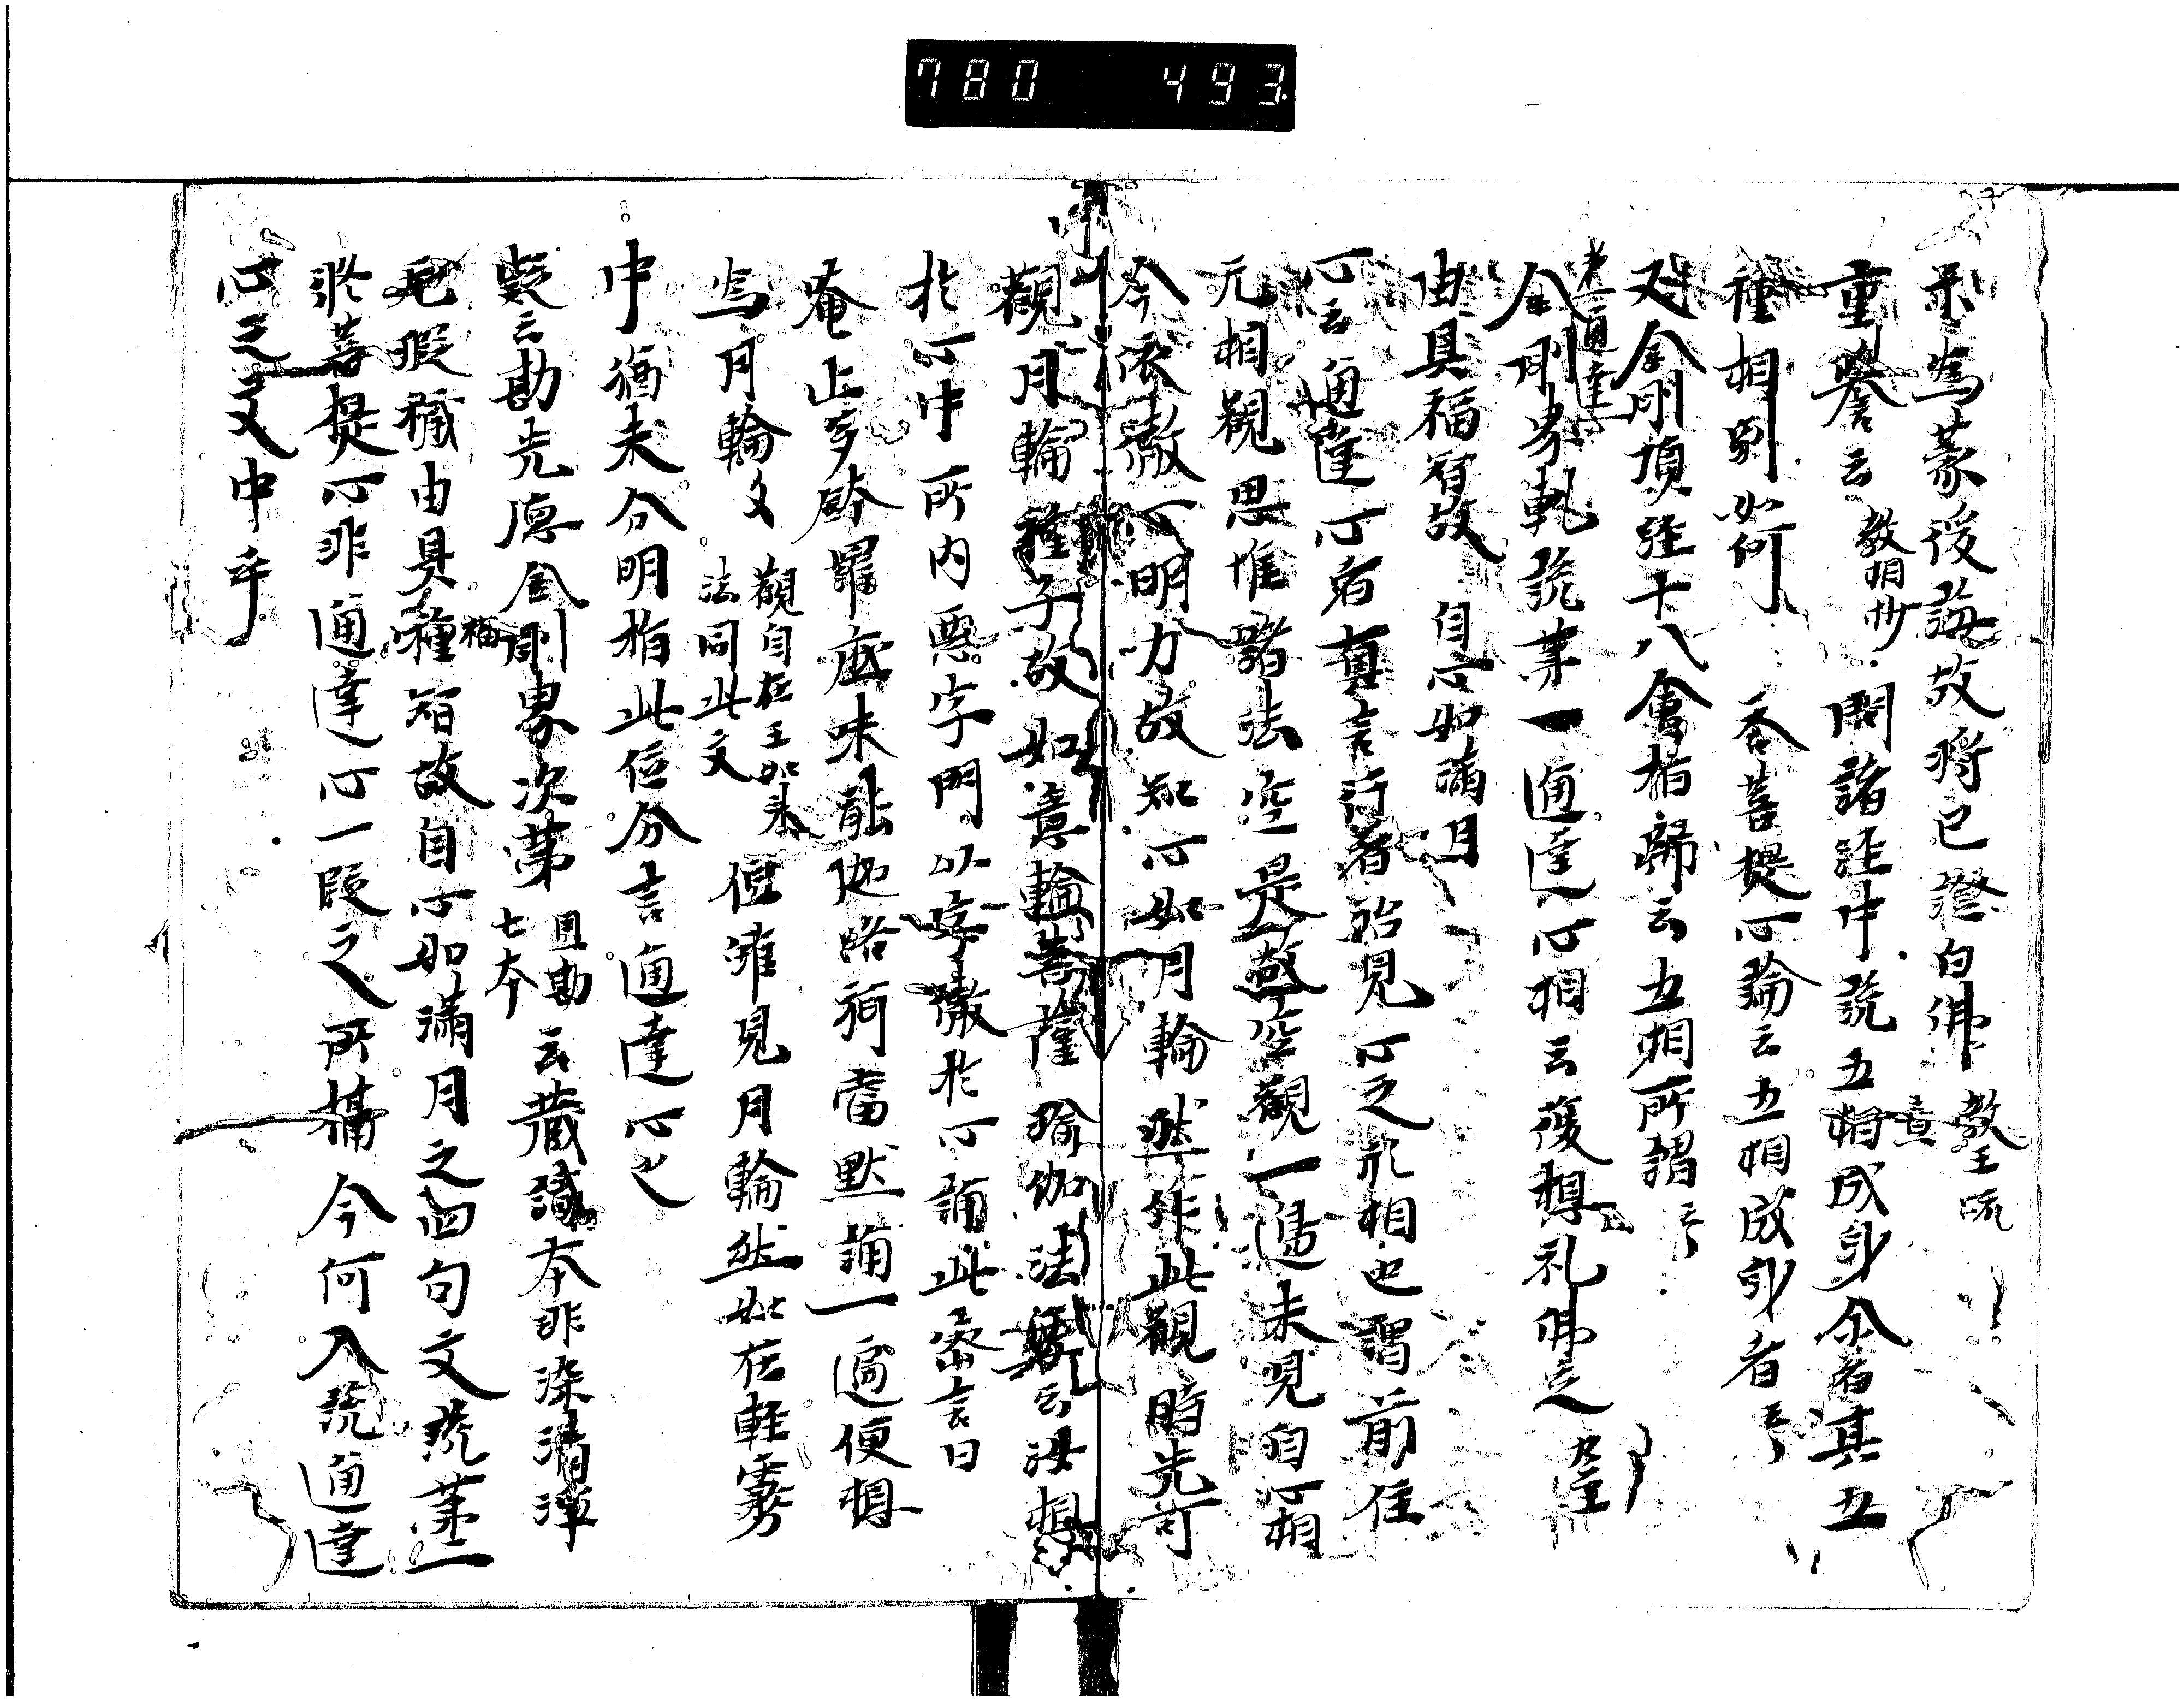 780 493
示為蒙後誨故将已證白佛 教王疏
重警云 教相抄 問諸經中説五相成身 尒者其五
種相別如何 答菩提心論云五相成身者 云々
又金剛頂經十八會指歸云五相所謂 云々
者一通達
金剛界軌説第一通達心相云復想礼佛足
由具福智故 自心如滿月
心云通達心者真言行者始見心之形相也謂前住
无相観思惟諸法空是故空観一邊未見自心相
今依徹心明力故知心如月輪然作此観時先可
觀月輪種子故如意輪菩薩瑜伽法要云汝想
於心中所内惡字門以字徹於心誦此密言曰
唵止多鉢羅底味能迦路弭當默誦一遍便想
為月輪文 觀自在王如来
法同此文 但雖見月輪然如在輕霧
中猶未分明指此位分言通達心也
疑云勘先德金剛界次第 且勘
七本 云藏識本非染清淨
无瑕穢由具福智故自心如滿月之四句文説第一
張菩提心非通達心一段之所攝今何入説通達
心之文中乎